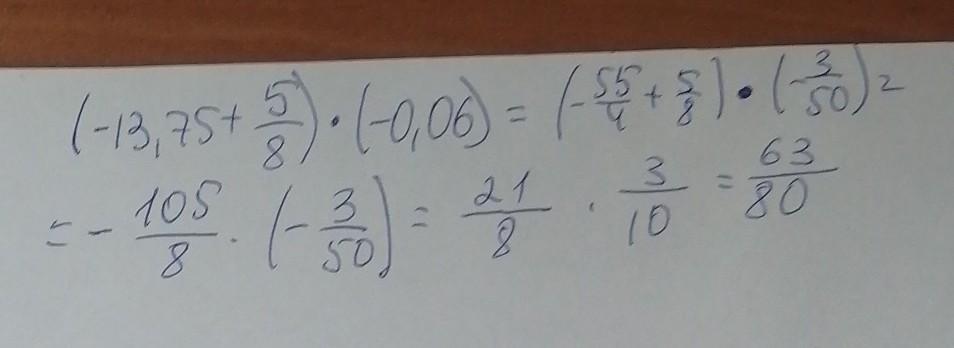 (-13,75+5/8)·(-0,06)=(-55/4+5/8)·(-3/50)=
=-105/8·(-3/50)=21/8·3/10=63/80